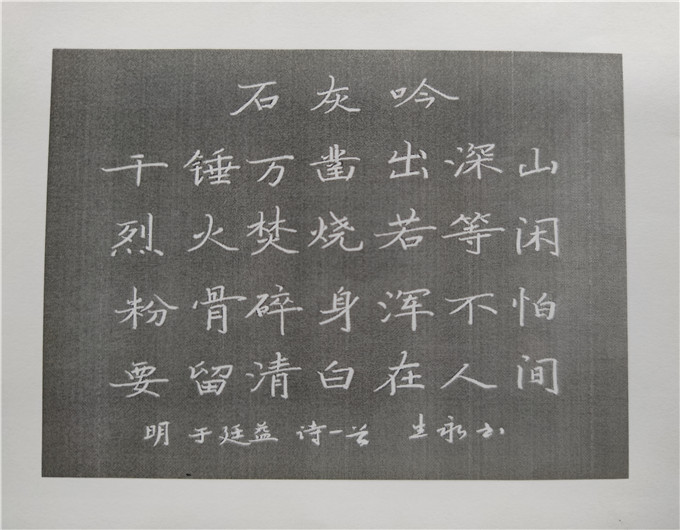 石灰吟
千锤万凿出深山
烈火焚烧若等闲
粉骨碎身浑不怕
要留清白在人间
明 于廷益 诗一首 生永书